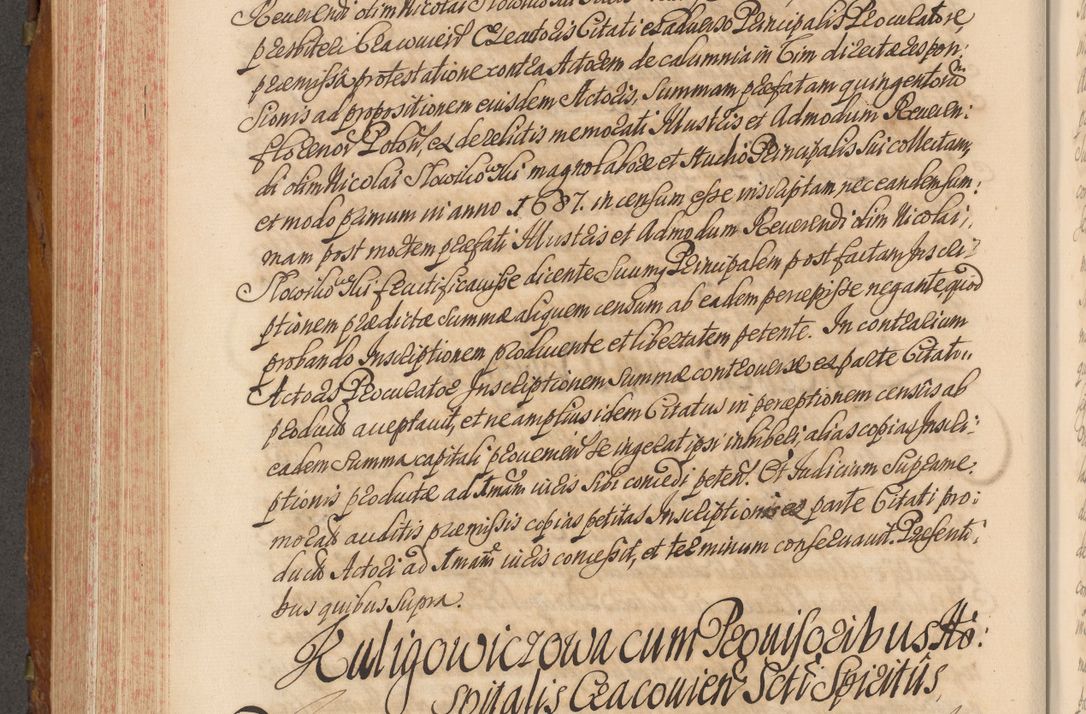 Reuerendi olim Nicolai
præsbiteri Cracouien Creatoris Citati ex aduerso Principalis Procuratore,
præmissa protestatione contra Actorem de calumnia in Cim directæ respon:
sionis ad propositionem eiusdem Actoris, Summam præfatam quingentorũ
florenor Poloń, ex derelictis memorati Illustris et Admodum Reueren:
di olim Nicolai Słowikowski magno labore et studio Principalis sui collectam,
et modo primum in anno 1687. in censum esse inscriptam nec eandem sum:
mam post mortem præfati Illustris et Admodum Reuerendi olim Nicolai,
Słowikowski fructificauisse dicente Suumq Principalem post factam Inscri:
ptionem prædictæ summæ aliquem censum ab eadem percepisse negante, quod
probando Inscriptionem producente et libertatem petente. In contrarium
Actoris Procurator Inscriptionem Summæ controuersæ ex parte Citati
productã acceptauit, et ne amplius idem Citatus in perceptionem censũs ab
eadem Summa capitali prouenień se ingerat ipsi inhiberi, alias copias Inscri:
ptionis productæ ad Imam iuris sibi concedi peteń. Et Iudicium Supreme:
moratũ auditis præmissis copias petitas Inscriptionis ex parte Citati pro:
ductã Actori ad Imam iuris concessit, et terminum conseruauit. Præsenti:
bus quibus supra.
Kuligowiczowa cum Prouisoribus Ho:
spitalis Cracouień Scti Spiritũs